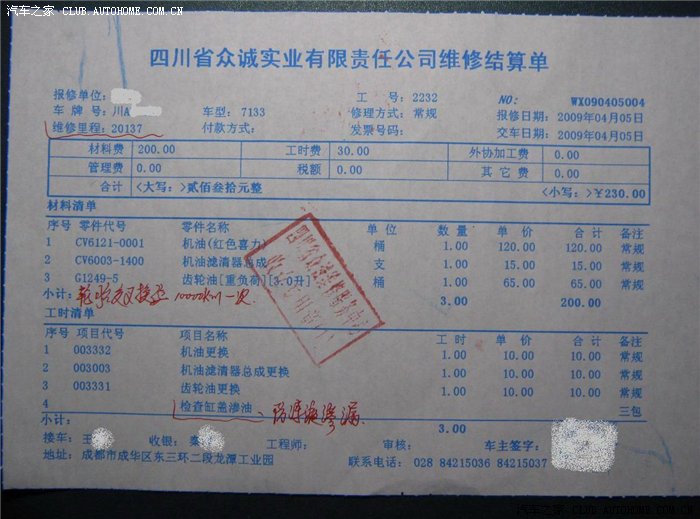 汽车之家 · CLUB.AUTOHOME.COM.CN
四川省众诚实业有限责任公司维修结算单
报修单位: 工 号: 2232 NO: WX090405004
车 牌 号: 川A 车型: 7133 修理方式: 常规 报修日期: 2009年04月05日
维修里程: 20137 付款方式: 发票号码: 交车日期: 2009年04月05日
材料费 200.00 工时费 30.00 外协加工费 0.00
管理费 0.00 税额 0.00 其 它 费 0.00
合计 <大写:>贰佰叁拾元整 <小写:>¥230.00
材料清单
序号 零件代号 零件名称 单 位 数 量 单 价 合 计 备注
1 CV6121-0001 机油(红色喜力) 桶 1.00 120.00 120.00 常规
2 CV6003-1400 机油滤清器总成 支 1.00 15.00 15.00 常规
3 G1249-5 齿轮油[重负荷][3.0升] 桶 1.00 65.00 65.00 常规
小计: 轮胎交叉换位 10000KM一次. 3.00 200.00
工时清单
序号 项目代号 项目名称 工 时 单 价 合 计 备注
1 003332 机油更换 1.00 10.00 10.00 常规
2 003003 机油滤清器总成更换 1.00 10.00 10.00 常规
3 003331 齿轮油更换 1.00 10.00 10.00 常规
4 检查缸盖渗油 三包
小计: 3.00
接车: 王 收银: 秦 工程师: 审核: 车主签字:
地址: 成都市成华区东三环二段龙潭工业园 联系电话: 028 84215036 84215037
汽车之家 · CLUB.AUTOHOME.COM.CN